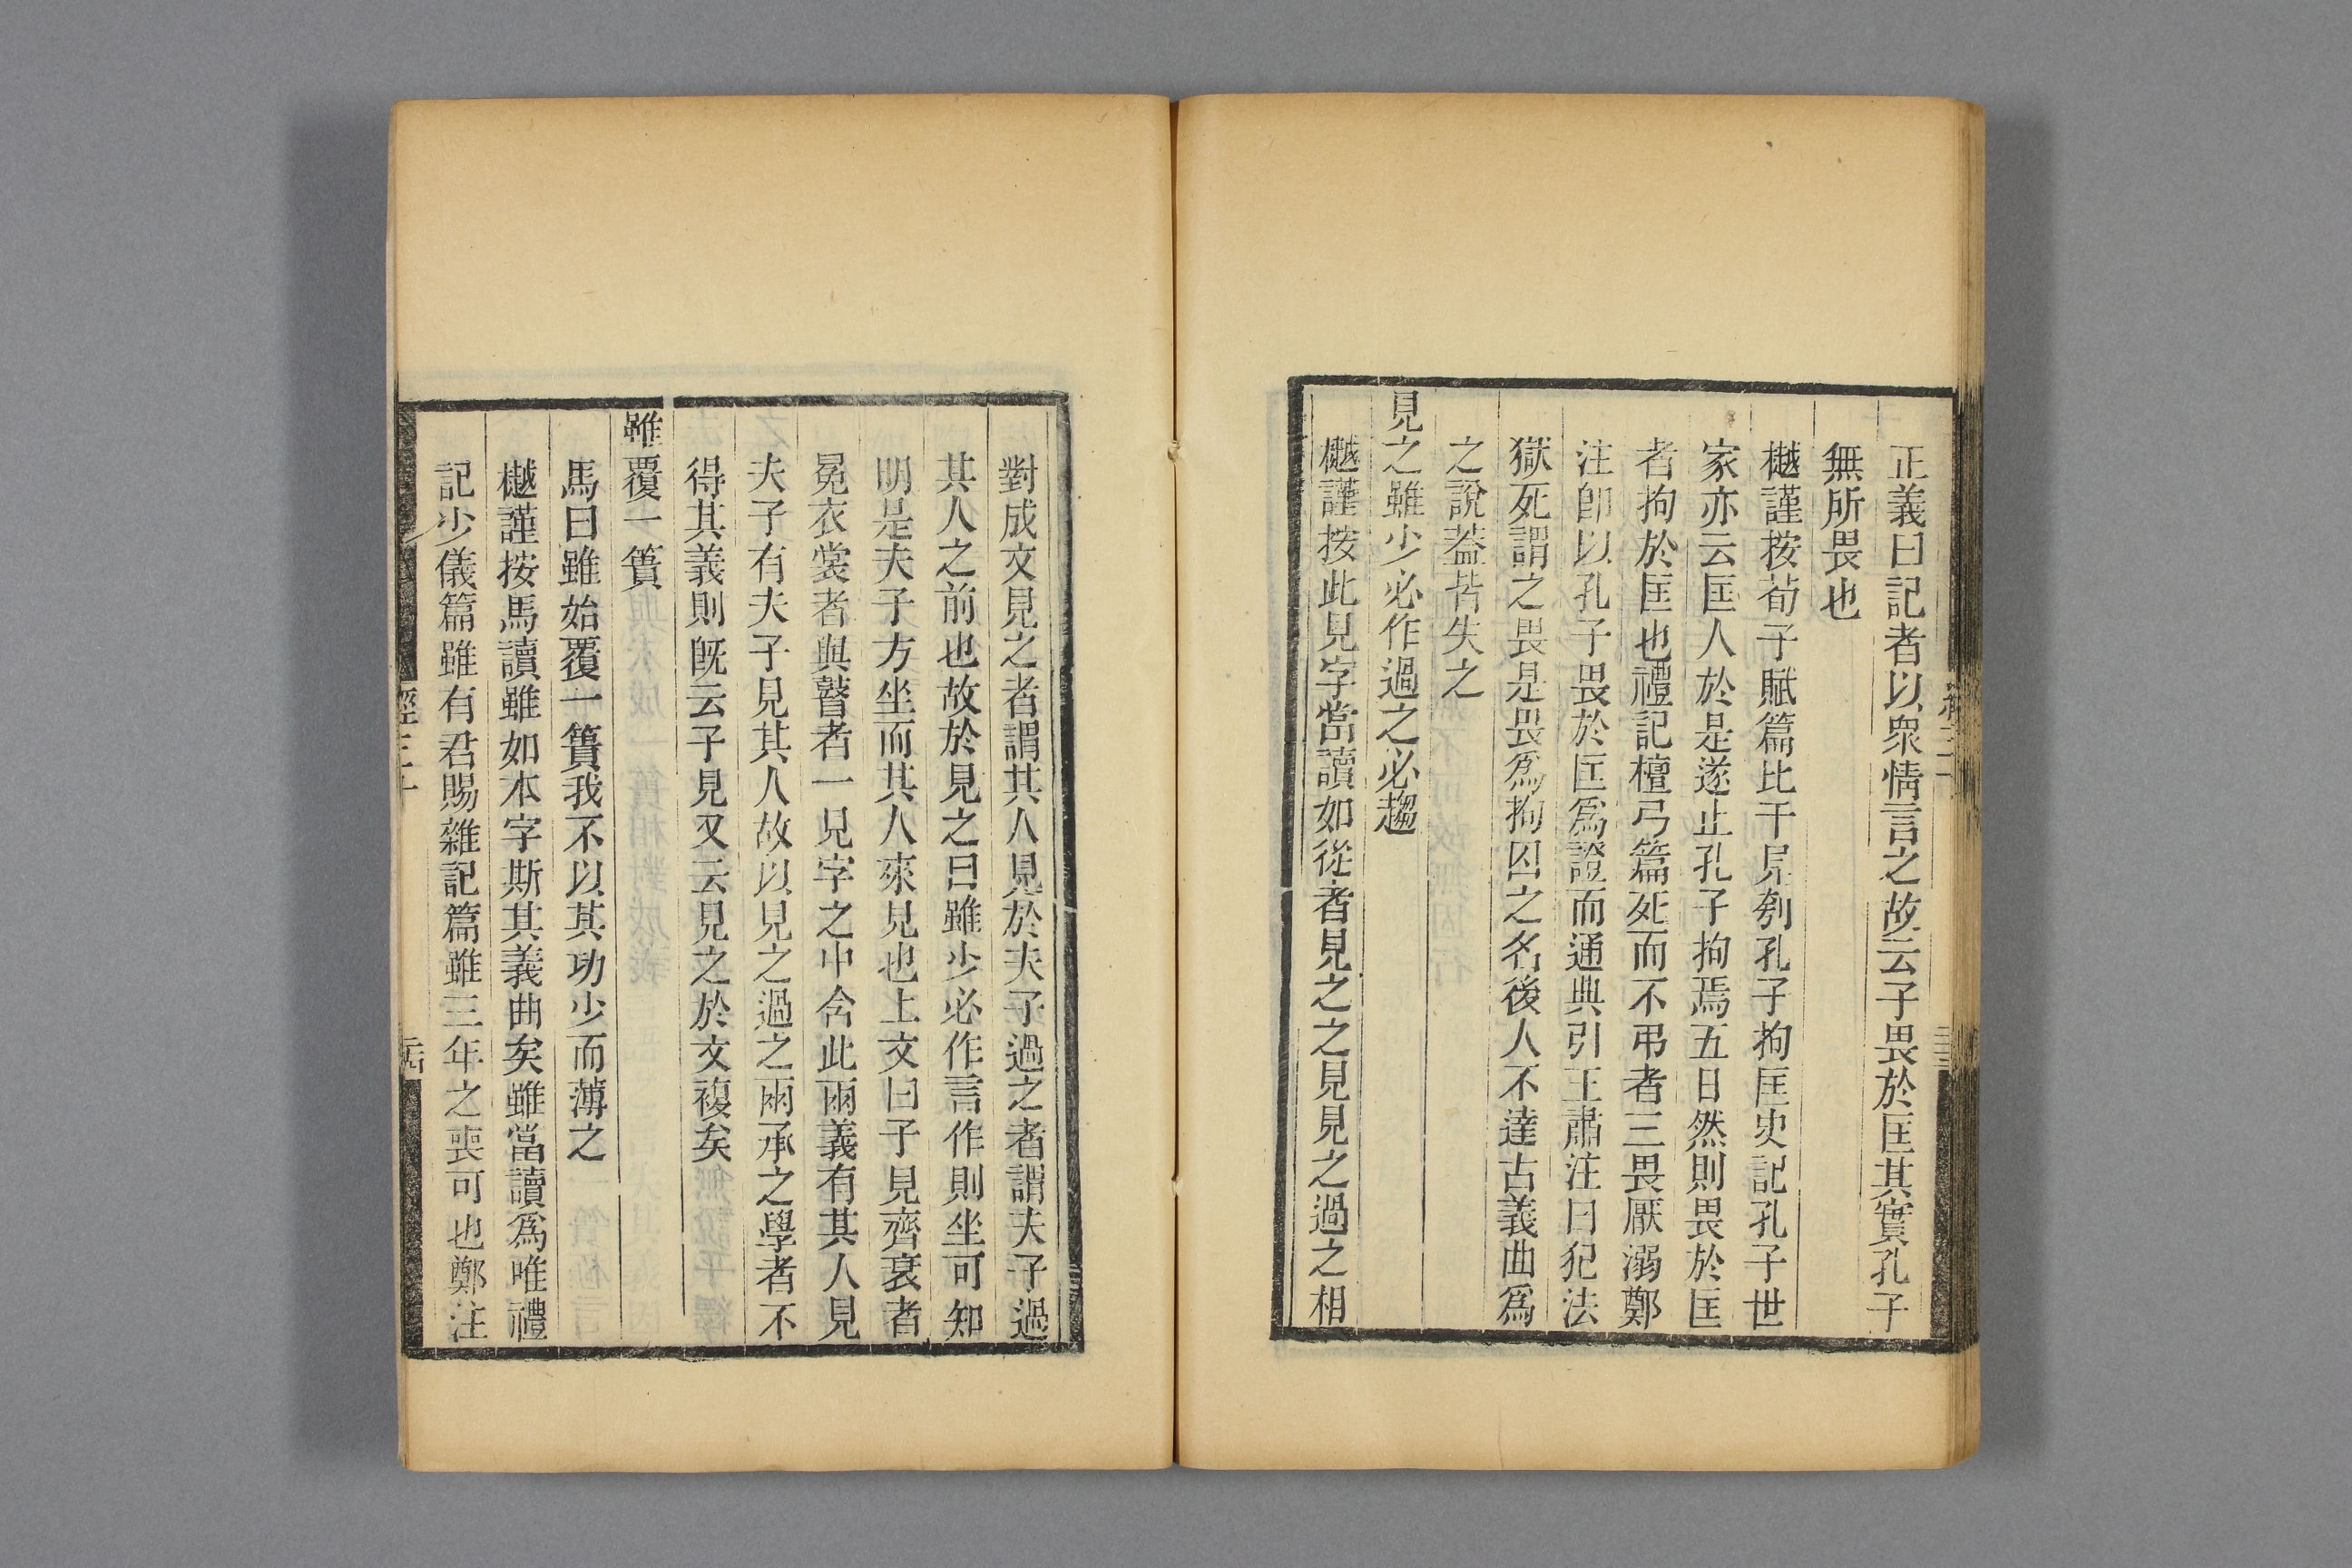 正義曰記者以衆情言之故云子畏於匡其實孔子
無所畏也
樾謹按荀子賦篇比干見刳孔子拘匡史記孔子世
家亦云匡人於是遂止孔子拘焉五日然則畏於匡
者拘於匡也禮記檀弓篇死而不弔者三畏厭溺鄭
注卽以孔子畏於匡爲證而通典引王肅注曰犯法
獄死謂之畏是畏爲拘囚之名後人不達古義曲爲
之說葢皆失之
見之雖少必作過之必趨
樾謹按此見字當讀如從者見之之見見之過之相
對成文見之者謂其人見於夫子過之者謂夫子過
其人之前也故於見之曰雖少必作言作則坐可知
明是夫子方坐而其人來見也上文曰子見齊衰者
冕衣裳者與瞽者一見字之中含此兩義有其人見
夫子有夫子見其人故以見之過之兩承之學者不
得其義則旣云子見又云見之於文複矣
雖覆一簣
馬曰雖始覆一簣我不以其功少而薄之
樾謹按馬讀雖如本字斯其義曲矣雖當讀爲唯禮
記少儀篇雖有君賜雜記篇雖三年之喪可也鄭注